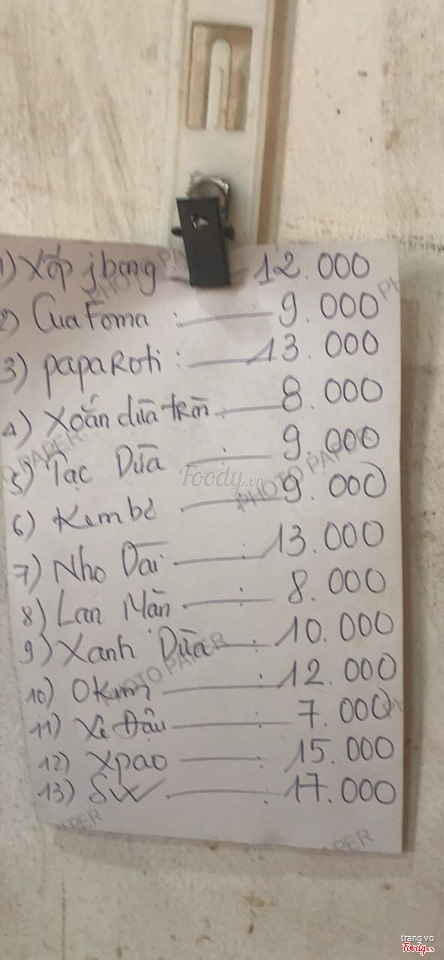 1) Xốp jbong 12.000
2) Cua Foma : 9.000
3) papaRoti : 13.000
4) Xoắn dừa tròn : 8.000
5) Tạc Dừa : 9.000
6) Kem bơ : 9.000
7) Nho Dài : 13.000
8) Lan Mặn : 8.000
9) Xanh Dừa : 10.000
10) Okim : 12.000
11) Xe Đậu : 7.000
12) Xpao : 15.000
13) SW : 17.000
Foody.vn
PHOTO PAPER
trang vo
Foody.vn